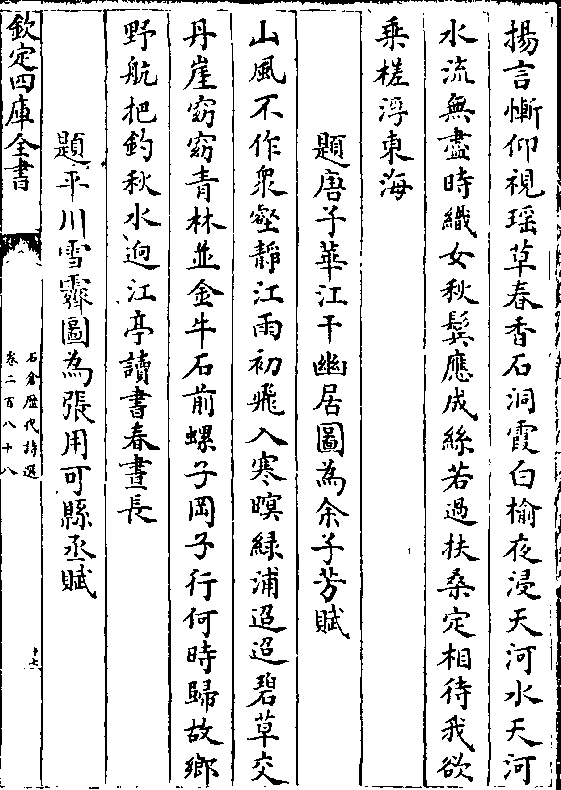 揚言慚仰視瑶草春香石洞霞白榆夜浸天河水天河
水流無盡時織女秋鬂應成絲若過扶桑定相待我欲
乘槎浮東海
題唐子華江干幽居圖為余子芳賦
山風不作衆壑靜江雨初飛入寒暝緑浦迢迢碧草交
丹崖窈窈青林並金牛石前螺子岡子行何時歸故鄉
野航把釣秋水逈江亭讀書春晝長
題平川雪霽圖為張用可縣丞賦
欽定四庫全書
石倉歴代詩選
卷二百八十八
十七